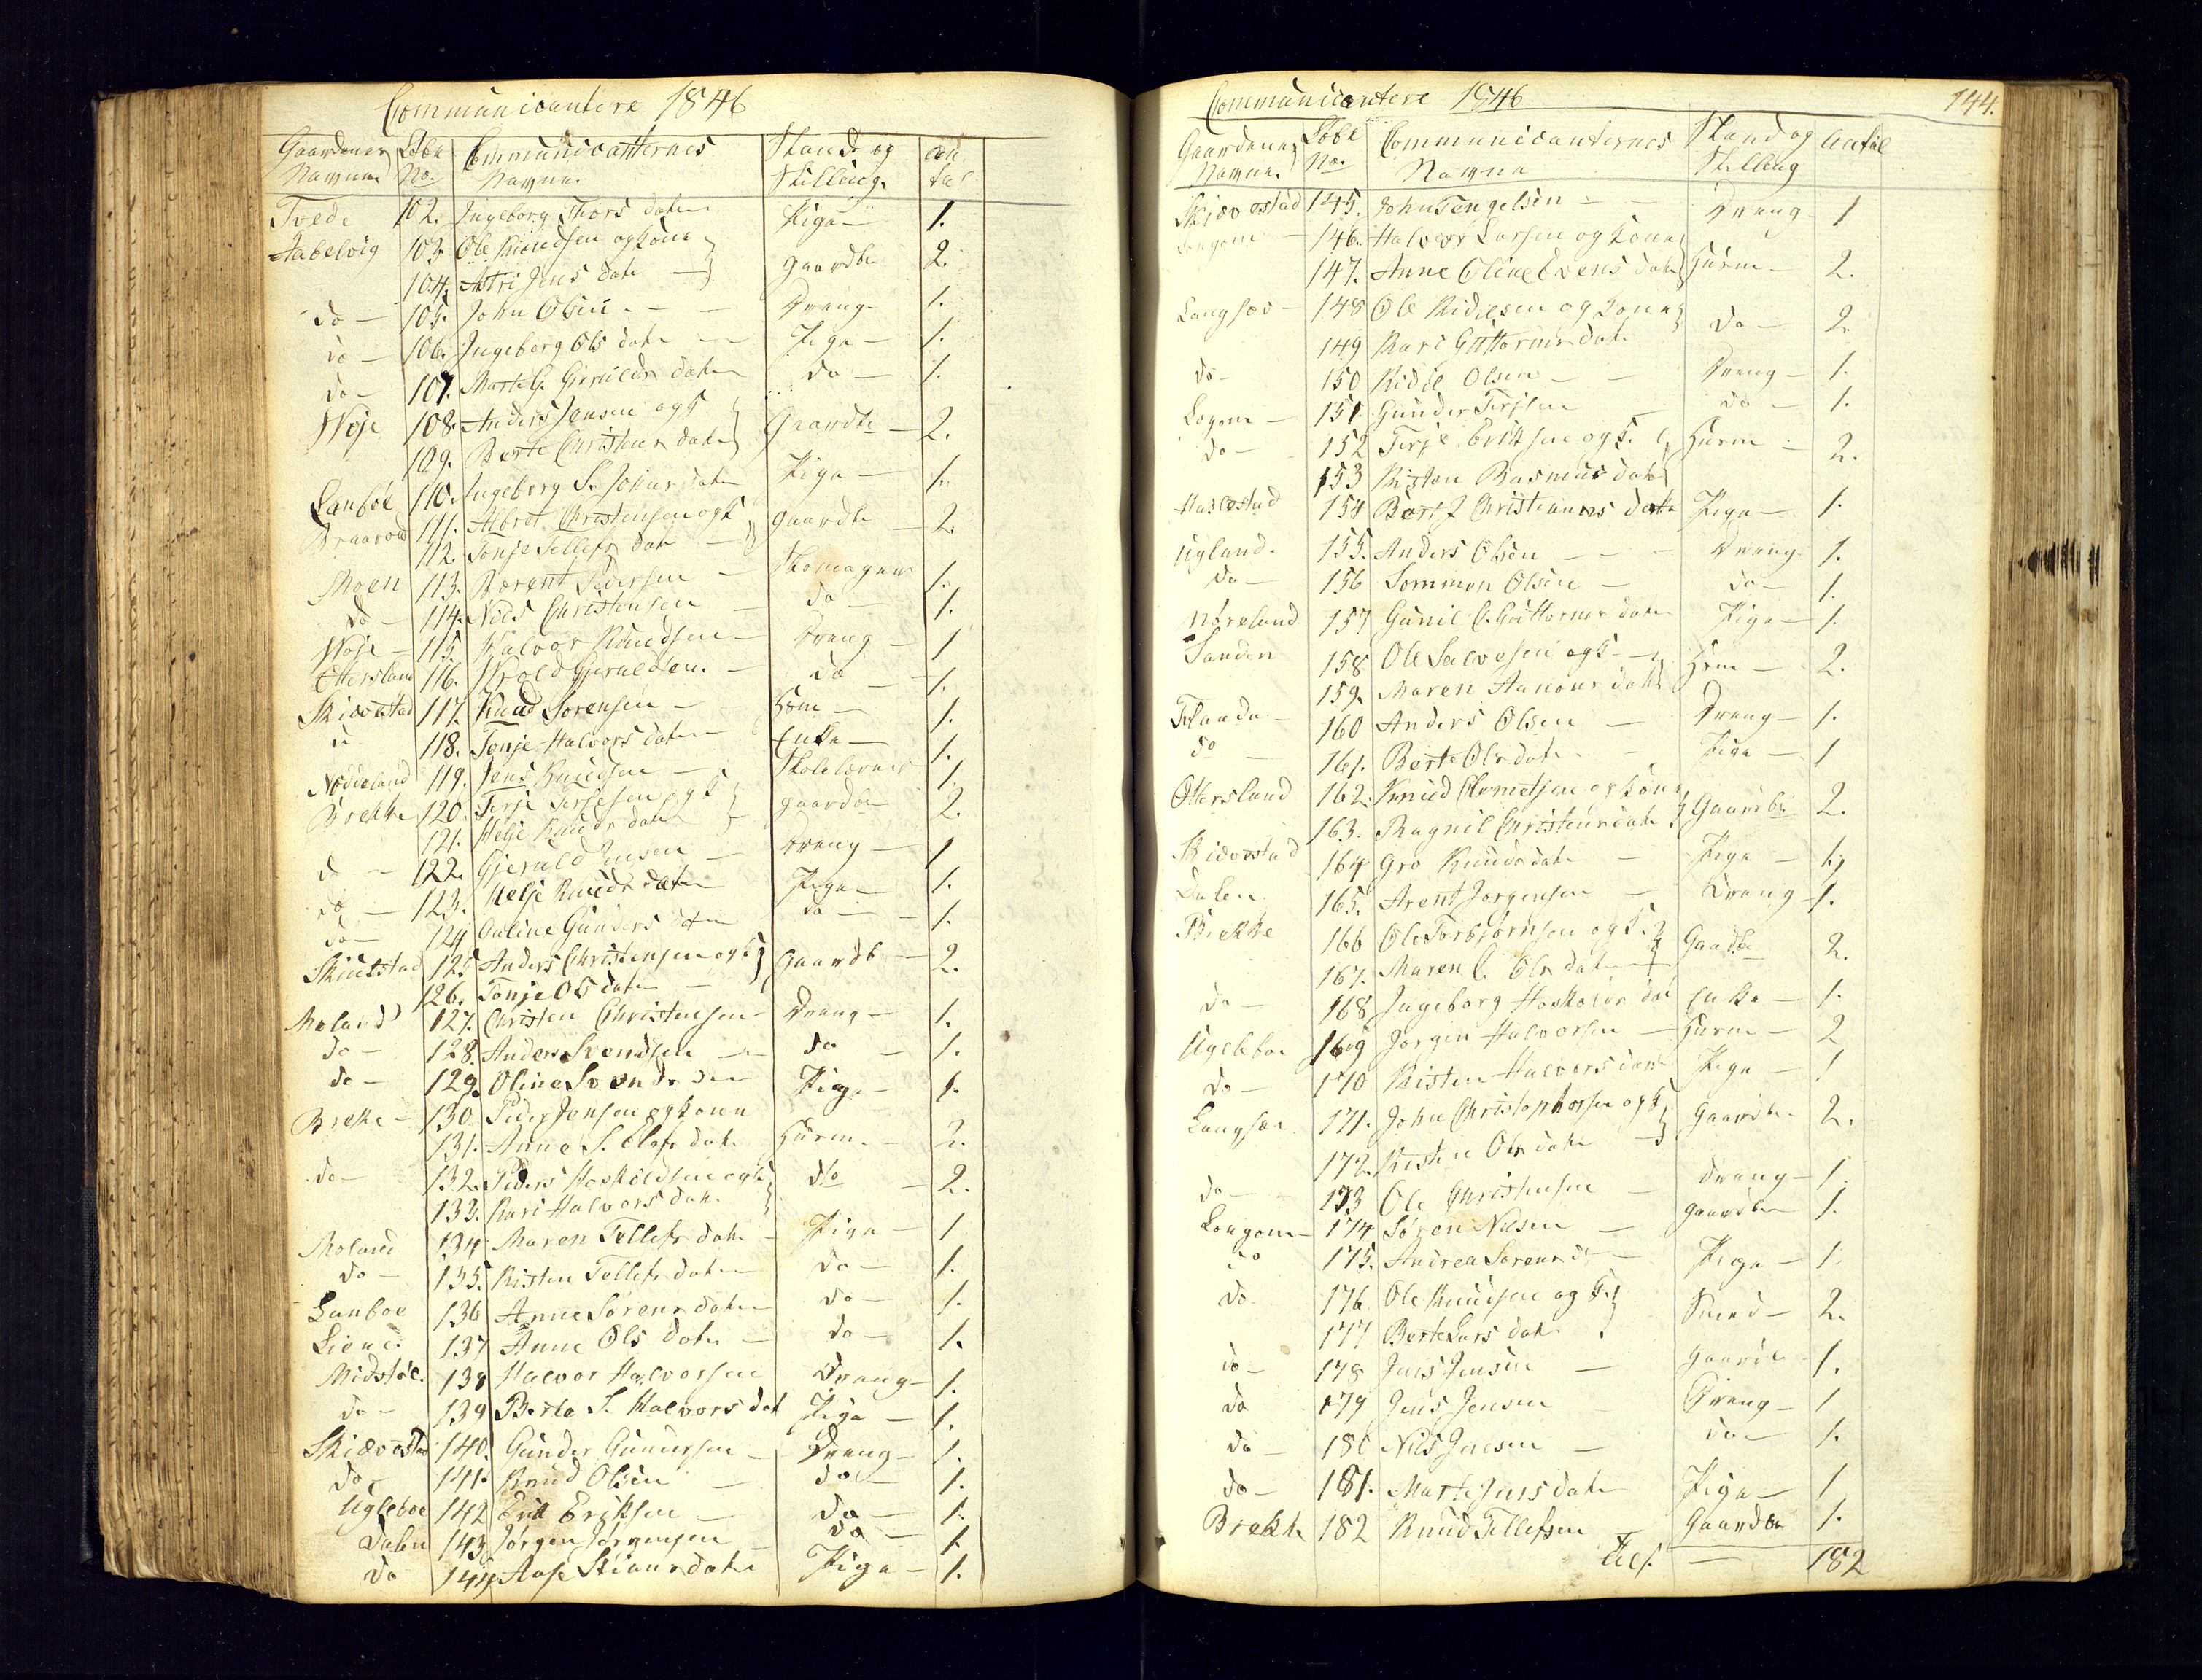 Communicantere 1846
Gaardenes Løbe Communicanternes Stand og An
Navne. No. Navne. Stilling. tal
Tvede 102. Ingeborg Thors dater Pige 1.
Aabelvig 103. Ole Knudsen og Kone
104. Astri Jens dater Gaardbr 2.
do 105. John Olsen Dreng 1.
do 106. Ingeborg Ols dater Pige 1.
do 107. Marte G. Gjeruldsdater do 1.
Woje 108. Anders Jensen og K
109. Berte Christens dater Gaardbr 2.
Lanböe 110. Ingeborg S. Johns dater Pige 1.
Braavold 111. Albret Christensen og K Gaardbr 2.
112. Tonje Tellefs dater
Moen 113. Berent Pedersen Skomager 1.
do 114. Nils Christensen do 1.
Woje 115. Halvor Knudsen Dreng 1
Ottersland 116. Wrold Gjeruldsen do 1.
Skiævestad 117. Knud Sörensen Hsm 1.
118. Tonje Halvors dater Enke 1.
119. Jens Knudsen Skolelærer 1.
Brekke 120. Terje Terjesen og K Gaardbr 2.
121. Helje Knuds dater
d 122. Gjeruld Jensen Dreng 1
do 123. Helje Knuds dater Pige 1.
do 124 Oaline Gunders dtr do 1.
125 Anders Christensen og K Gaardb 2.
126. Tonje Ols dater
Moland 127. Christen Christensen Dreng 1.
do 128. Anders Svendsen do 1.
do 129. Oline Svends der Pige 1.
Breke 130 Peder Jensen og Kone
131. Anne S. Elefs dater Husm. 2.
do 132. Peders Hoskoldsen og K do 2.
133. Kari Halvors dater
Moland 134 Maren Tellefs dater Pige 1
do 135. Kisten Tellefs dater do 1.
Lanboe 136 Anne Sörens dater do 1.
Liene 137 Anne Ols dater do 1.
Midstöl. 138 Halvor Halvorsen Dreng 1.
do 139 Berte S. Halvors dat Pige 1.
Skiævestad 140. Gunder Gundersen Dreng 1.
do 141. Knud Olsen do 1.
Ugleboe 142 Erik Eriksen do 1.
Dalen 143 Jørgen Jørgensen do 1
do 144 Aase Stians dater Pige 1.
Communicantere 1846 144.
Gaardenes Løbe Communicanternes Stand og Antal
Navne. No. Navne Stilling
Skiævestad 145. John Tengelsen Dreng 1
Longom 146. Halvor Larsen og Kone
147. Anne Oline Evens dater Husm 2.
Langsæe 148 Ole Kidilsen og Kone do 2.
149 Kari Guttorms dater
do 150 Kidil Olsen Dreng 1.
Logom 151 Gunder Terjsen do 1.
do 152 Terje Eriksen og K. Husm 2.
153 Kisten Rasmus dater
Haslestad 154 Bert J Christians dater Pige 1.
Ugland 155. Anders Olsen Dreng 1.
do 156 Sommon Olsen do 1.
Nöreland 157 Gunil O. Guttorms dater Pige 1.
Sanden 158 Ole Salvesen og K. Hsm 2.
159. Maren Aanons dater
Flaade 160 Anders Olsen Dreng 1.
do 161. Berte Ols dater Pige 1
Ottersland 162. Knud Clemetsen og Kone Gaardbr 2.
163. Ragnil Christens dater
Skiævestad 164 Gro Knuds dater Pige 1.
Dalen 165. Arent Jorgensen Dreng 1.
Brekke 166 Ole Torbjørnsen og K. Gaardbr 2.
167. Maren C. Ols dater
do 168 Ingeborg Hoskolds dat Enke 1.
Ugleboe 169 Jorgen Halvorsen Husm 2
do 170 Kisten Halvors dater Pige 1
Langsæe 171. John Christophersen og K Gaardbr 2.
172. Kisten Ols dater
do 173 Ole Christensen Dreng 1.
Longom 174 Søren Nilsen Gaardbr 1.
do 175. Andrea Sörens d Pige 1.
do 176. Ole Knudsen og K. Smed 2.
177 Berte Lars dater
do 178 Jens Jensen Gaardbr 1.
do 179 Jens Jensen Dreng 1
do 180 Nils Jensen do 1.
do 181. Marte Jens dater Pige 1
Brekke 182 Knud Tellefsen Gaardbr 1.
Tils. 182